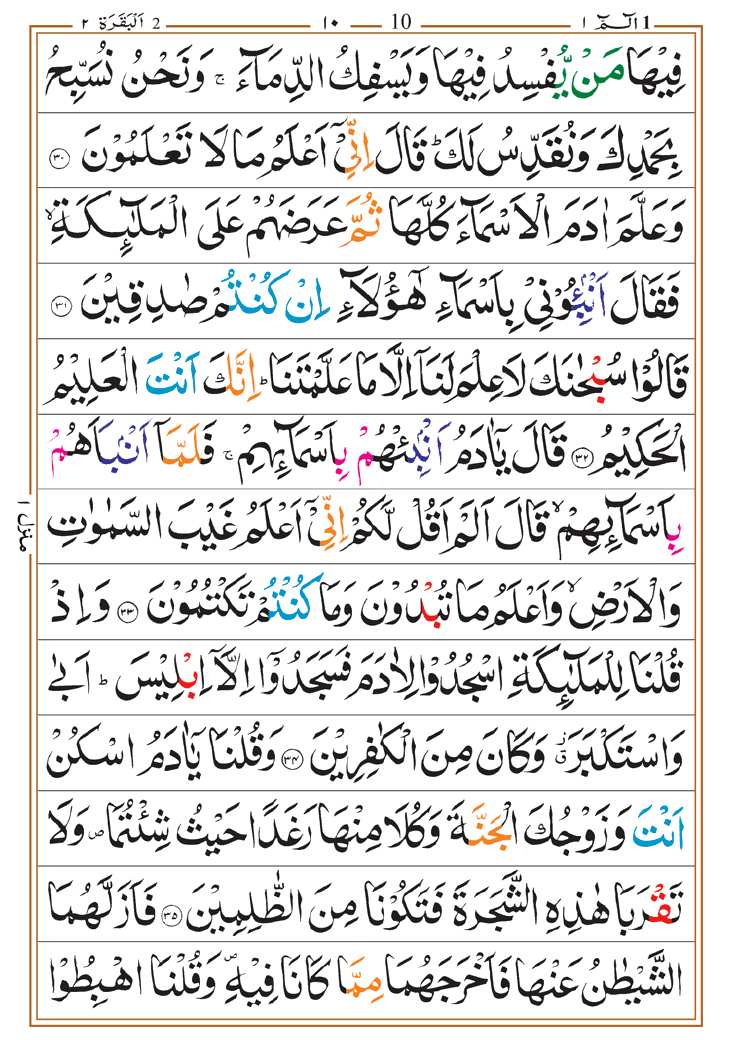 1 الٓمّٓ ١ 10 ١٠ 2 اَلْبَقَرَة ٢
فِيْهَا مَنْ يُّفْسِدُ فِيْهَا وَيَسْفِكُ الدِّمَآءَ ۚ وَنَحْنُ نُسَبِّحُ
بِحَمْدِكَ وَنُقَدِّسُ لَكَ ؕ قَالَ اِنِّىْٓ اَعْلَمُ مَا لَا تَعْلَمُوْنَ ۝٣٠
وَعَلَّمَ اٰدَمَ الْاَسْمَآءَ كُلَّهَا ثُمَّ عَرَضَهُمْ عَلَى الْمَلٰٓئِكَةِ ۙ
فَقَالَ اَنْۢبِـُٔوْنِىْ بِاَسْمَآءِ هٰٓؤُلَآءِ اِنْ كُنْتُمْ صٰدِقِيْنَ ۝٣١
قَالُوْا سُبْحٰنَكَ لَا عِلْمَ لَنَآ اِلَّا مَا عَلَّمْتَنَا ؕ اِنَّكَ اَنْتَ الْعَلِيْمُ
الْحَكِيْمُ ۝٣٢ قَالَ يٰٓاٰدَمُ اَنْۢبِئْهُمْ بِاَسْمَآئِهِمْ ۚ فَلَمَّآ اَنْۢبَاَهُمْ
بِاَسْمَآئِهِمْ ۙ قَالَ اَلَمْ اَقُلْ لَّكُمْ اِنِّىْٓ اَعْلَمُ غَيْبَ السَّمٰوٰتِ
وَالْاَرْضِ ۙ وَاَعْلَمُ مَا تُبْدُوْنَ وَمَا كُنْتُمْ تَكْتُمُوْنَ ۝٣٣ وَاِذْ
قُلْنَا لِلْمَلٰٓئِكَةِ اسْجُدُوْا لِاٰدَمَ فَسَجَدُوْٓا اِلَّآ اِبْلِيْسَ ؕ اَبٰى
وَاسْتَكْبَرَ ۗ وَكَانَ مِنَ الْكٰفِرِيْنَ ۝٣٤ وَقُلْنَا يٰٓاٰدَمُ اسْكُنْ
اَنْتَ وَزَوْجُكَ الْجَنَّةَ وَكُلَا مِنْهَا رَغَدًا حَيْثُ شِئْتُمَا ۪ وَلَا
تَقْرَبَا هٰذِهِ الشَّجَرَةَ فَتَكُوْنَا مِنَ الظّٰلِمِيْنَ ۝٣٥ فَاَزَلَّهُمَا
الشَّيْطٰنُ عَنْهَا فَاَخْرَجَهُمَا مِمَّا كَانَا فِيْهِ ۪ وَقُلْنَا اهْبِطُوْا
منزل ١